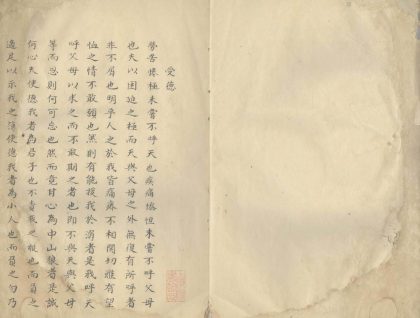 受德
勞苦倦極未嘗不呼天也疾痛慘怛未嘗不呼父母
也夫以困迫之極而天與父母之外無復有所呼者
非不屑也明乎人之於我皆痛癢不相關切雖有望
恤之情不敢瀆也然則有能援我於溺者是我呼天
呼父母以求之而不敢期之者也即不與天與父母
等而恩則何可忘也然而竟甘心為中山狼者是誠
何心天使德我者為君子也不責我之報也而負之
適足以示我之薄使德我者為小人也而負之